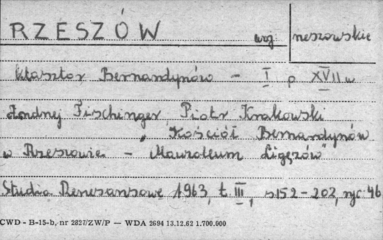 RZESZÓW woj rzeszowskie
Klasztor Bernardynów - I p XVII w
Andrzej Fischinger Piotr Krakowski
Kościół Bernardynów
w Rzeszowie - Mauzoleum Ligęzów
Studia Renesansowe 1963, t. III, s 152-202, ryc. 46
CWD - B-15-b, nr 2827/ZW/P — WDA 2694 13.12.62 1.700.000